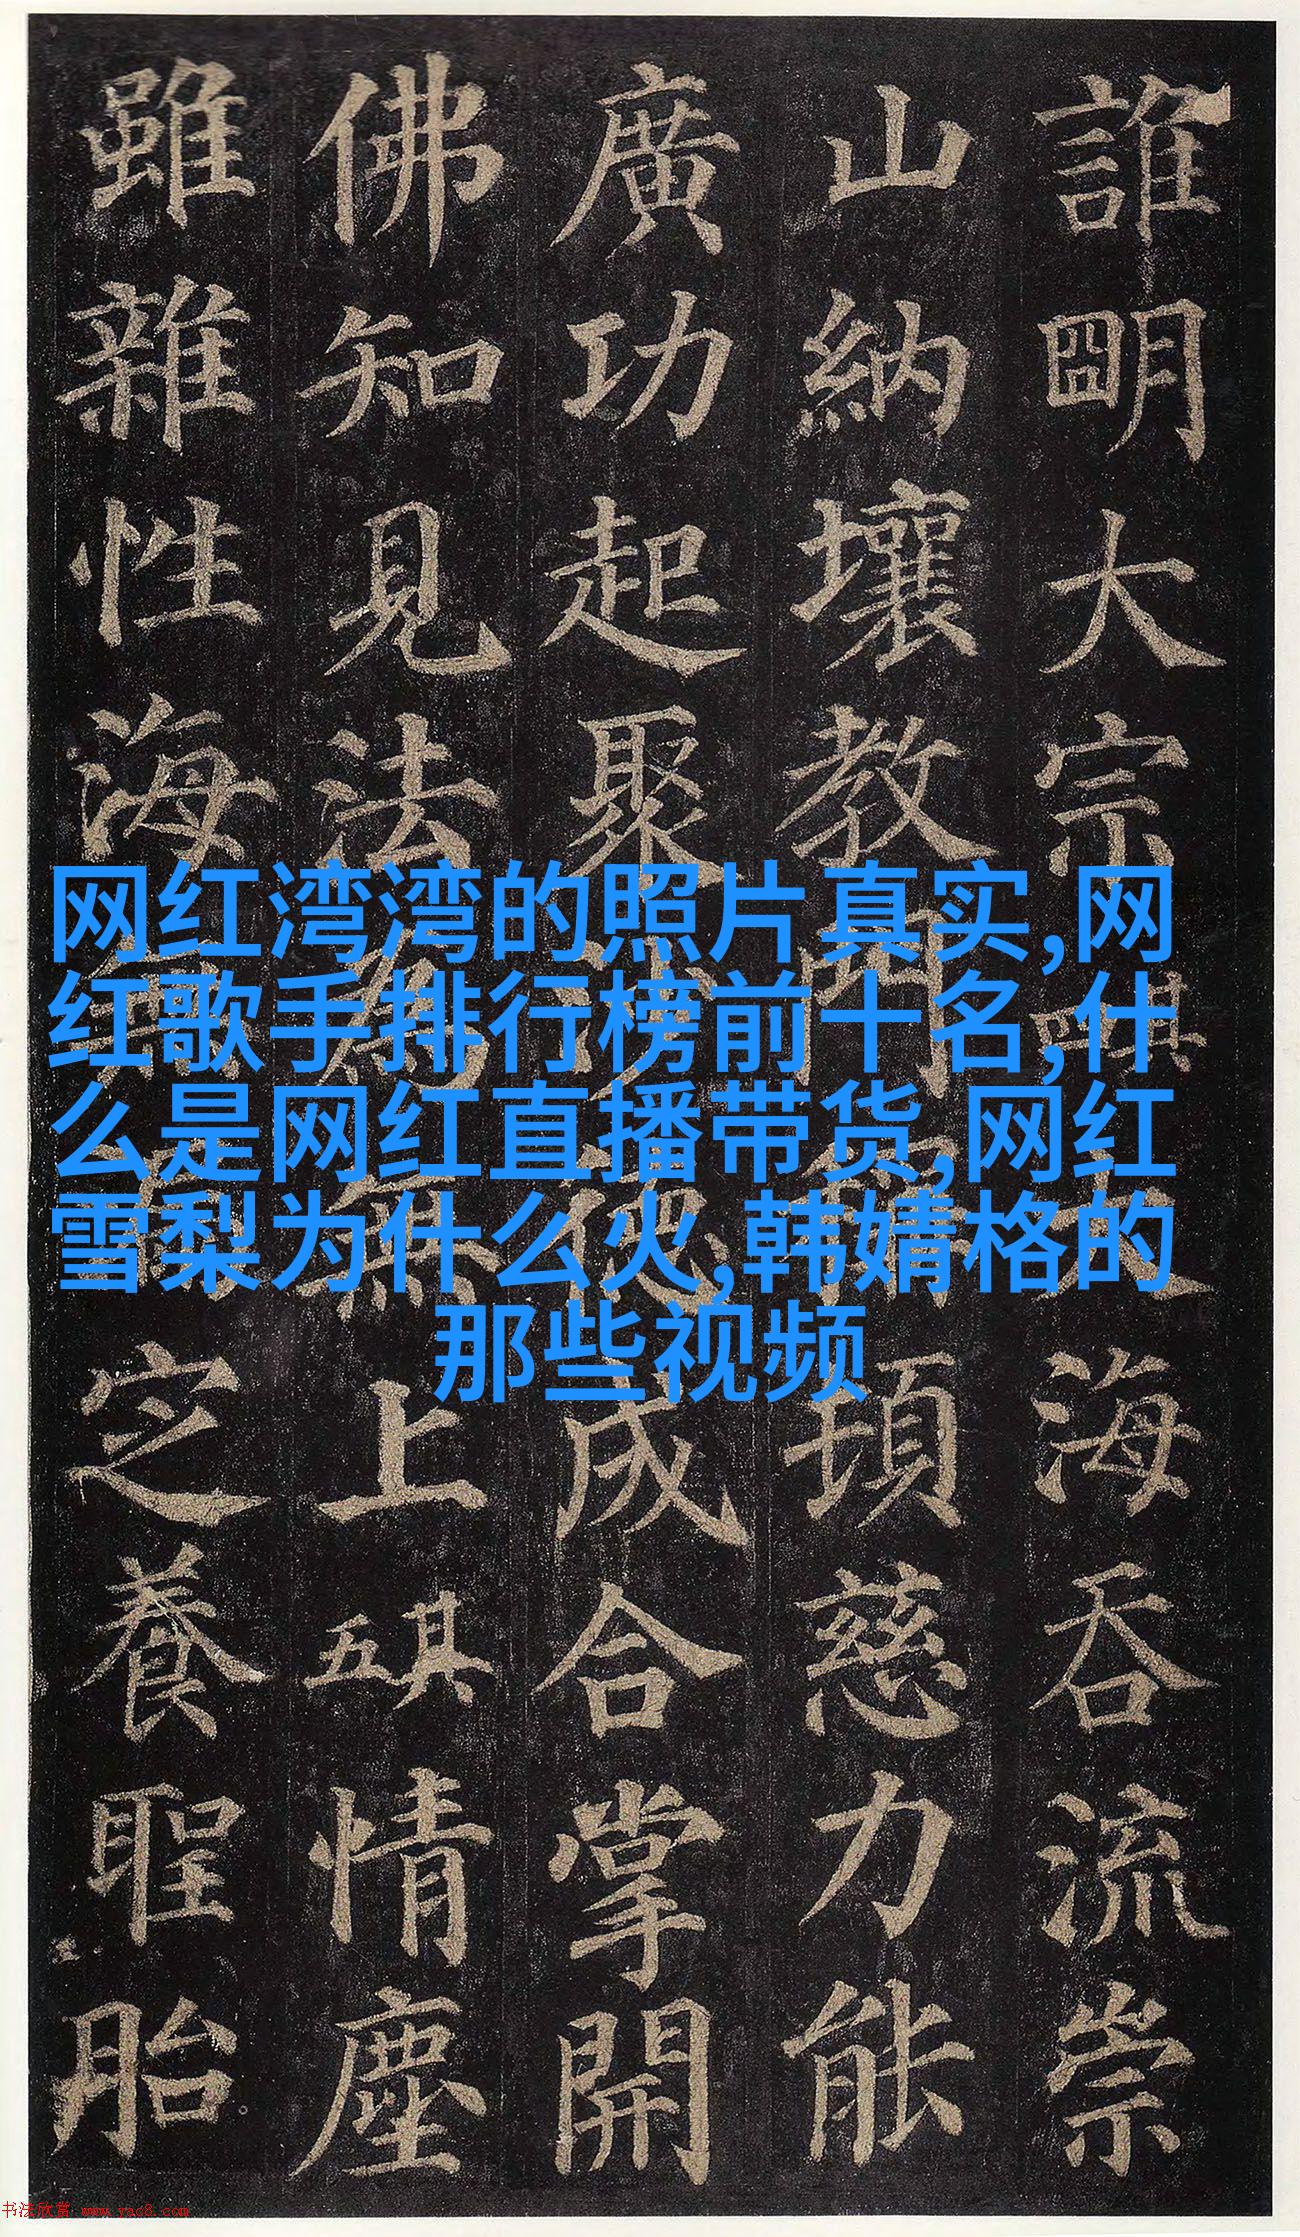 誰明大宗其大海吞流崇
山納壤教門頓慈力能
廣功起聚沙德成合掌開
佛知見法為無上其五情塵
雖雜性海無定養聖胎
网红湾湾的照片真实,网
红歌手排行榜前十名,什
么是网红直播带货,网红
雪梨为什么火,韩婧格的
那些视频
书法欣赏 www.yac8.com